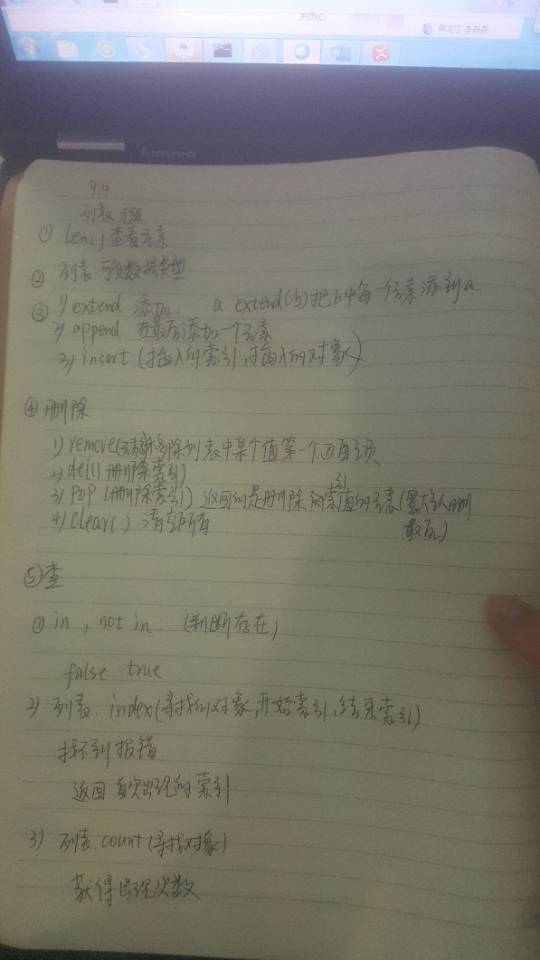 9.4
列表 元组
① len() 查看元素
② 列表:可变数据类型
③ 1) extend 添加 a extend(b)把b中每一个元素添到a
2) append 在最后添加一个元素
3) insert (插入的索引,插入的对象)
④ 删除
1) remove(元素)移除列表中某个值第一个匹配项
2) del[]删除索引)
3) pop (删除索引) 返回的是删除索引值的元素(默认删
最后)
4) clear() 清空所有
⑤查
1) in , not in (判断存在)
false true
2) 列表. index(寻找的对象,开始索引,结束索引)
找不到报错
返回首次出现的索引
3) 列表.count(寻找对象)
获得出现次数